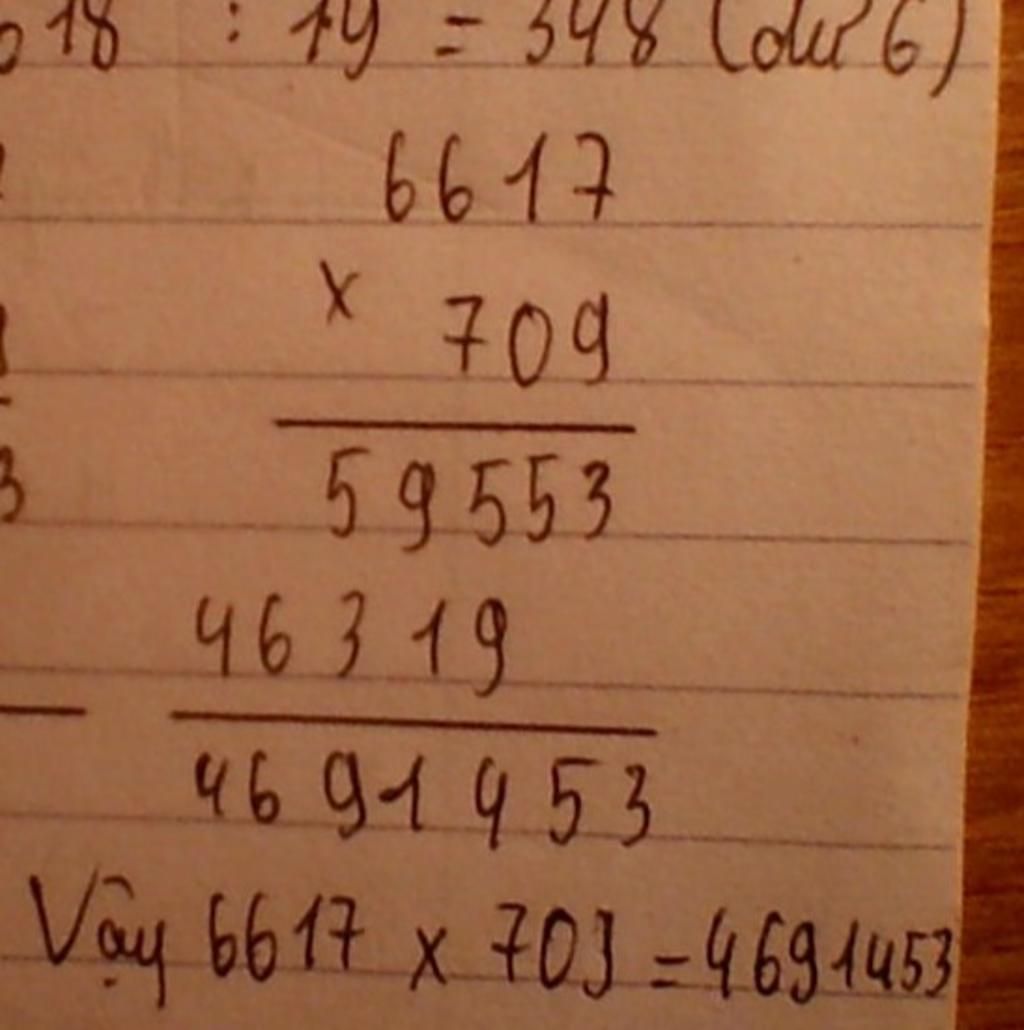 618 : 19 = 348 (dư 6)
6617
x 709
59553
46319
4691453
Vậy 6617 x 709 = 4691453